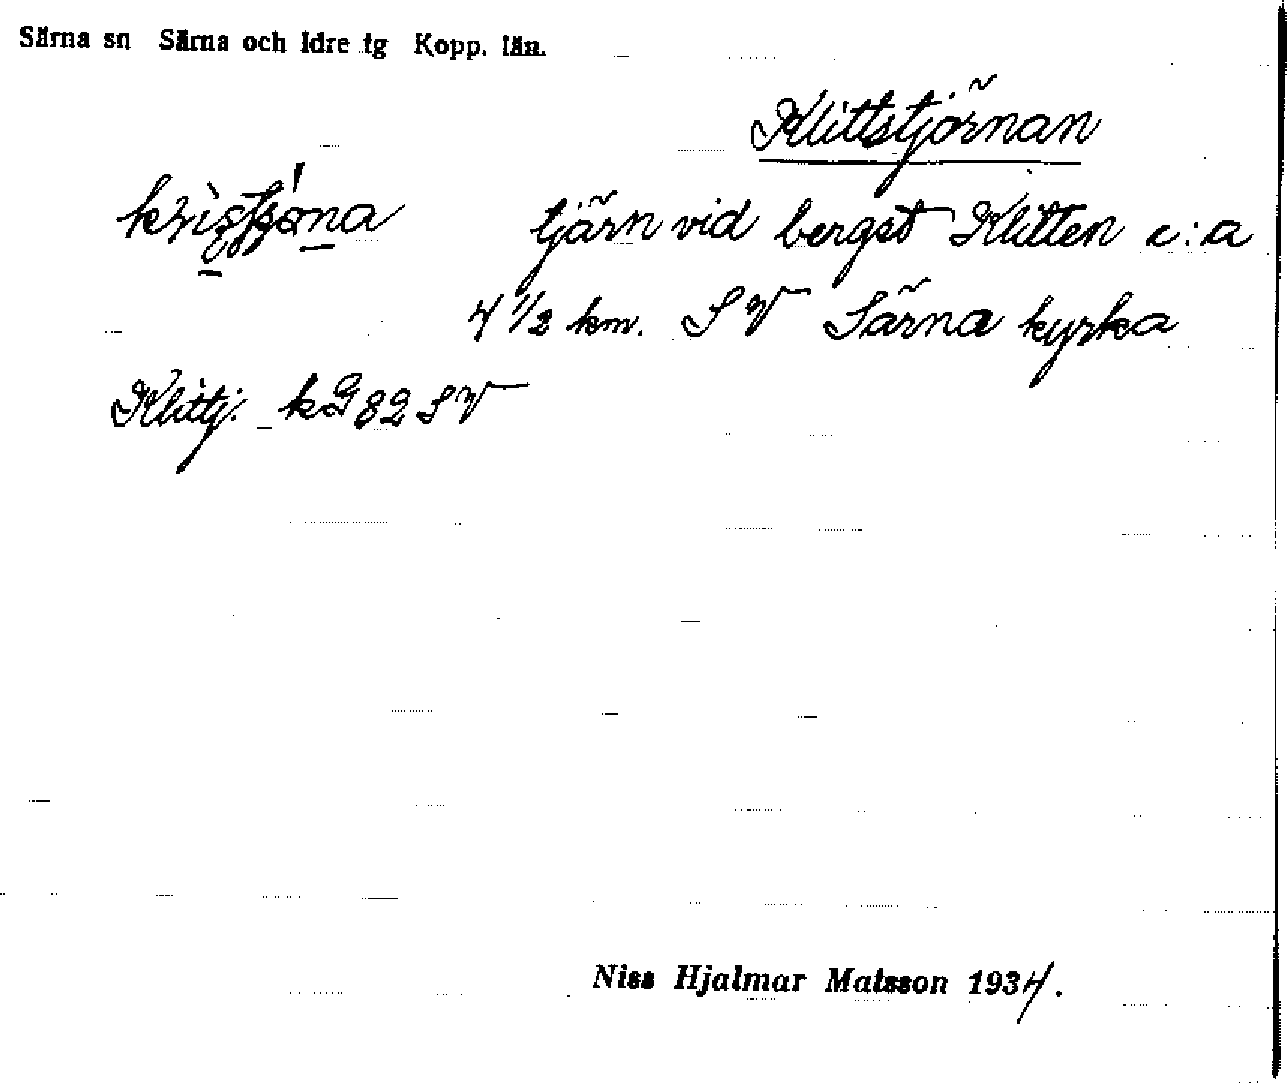 Särna sn Särna och Idre tg Kopp. län.
Klittstjörnan
tjärn vid bergst Klitten c:a
4 1/2 km. SV Särna kyrka
Klittj. kG 82 SV
Niss Hjalmar Matsson 1934.